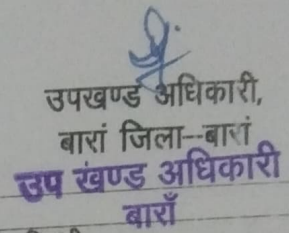 उपखण्ड अधिकारी,
बारां जिला--बारां
उप खंण्ड अधिकारी
बाराँ